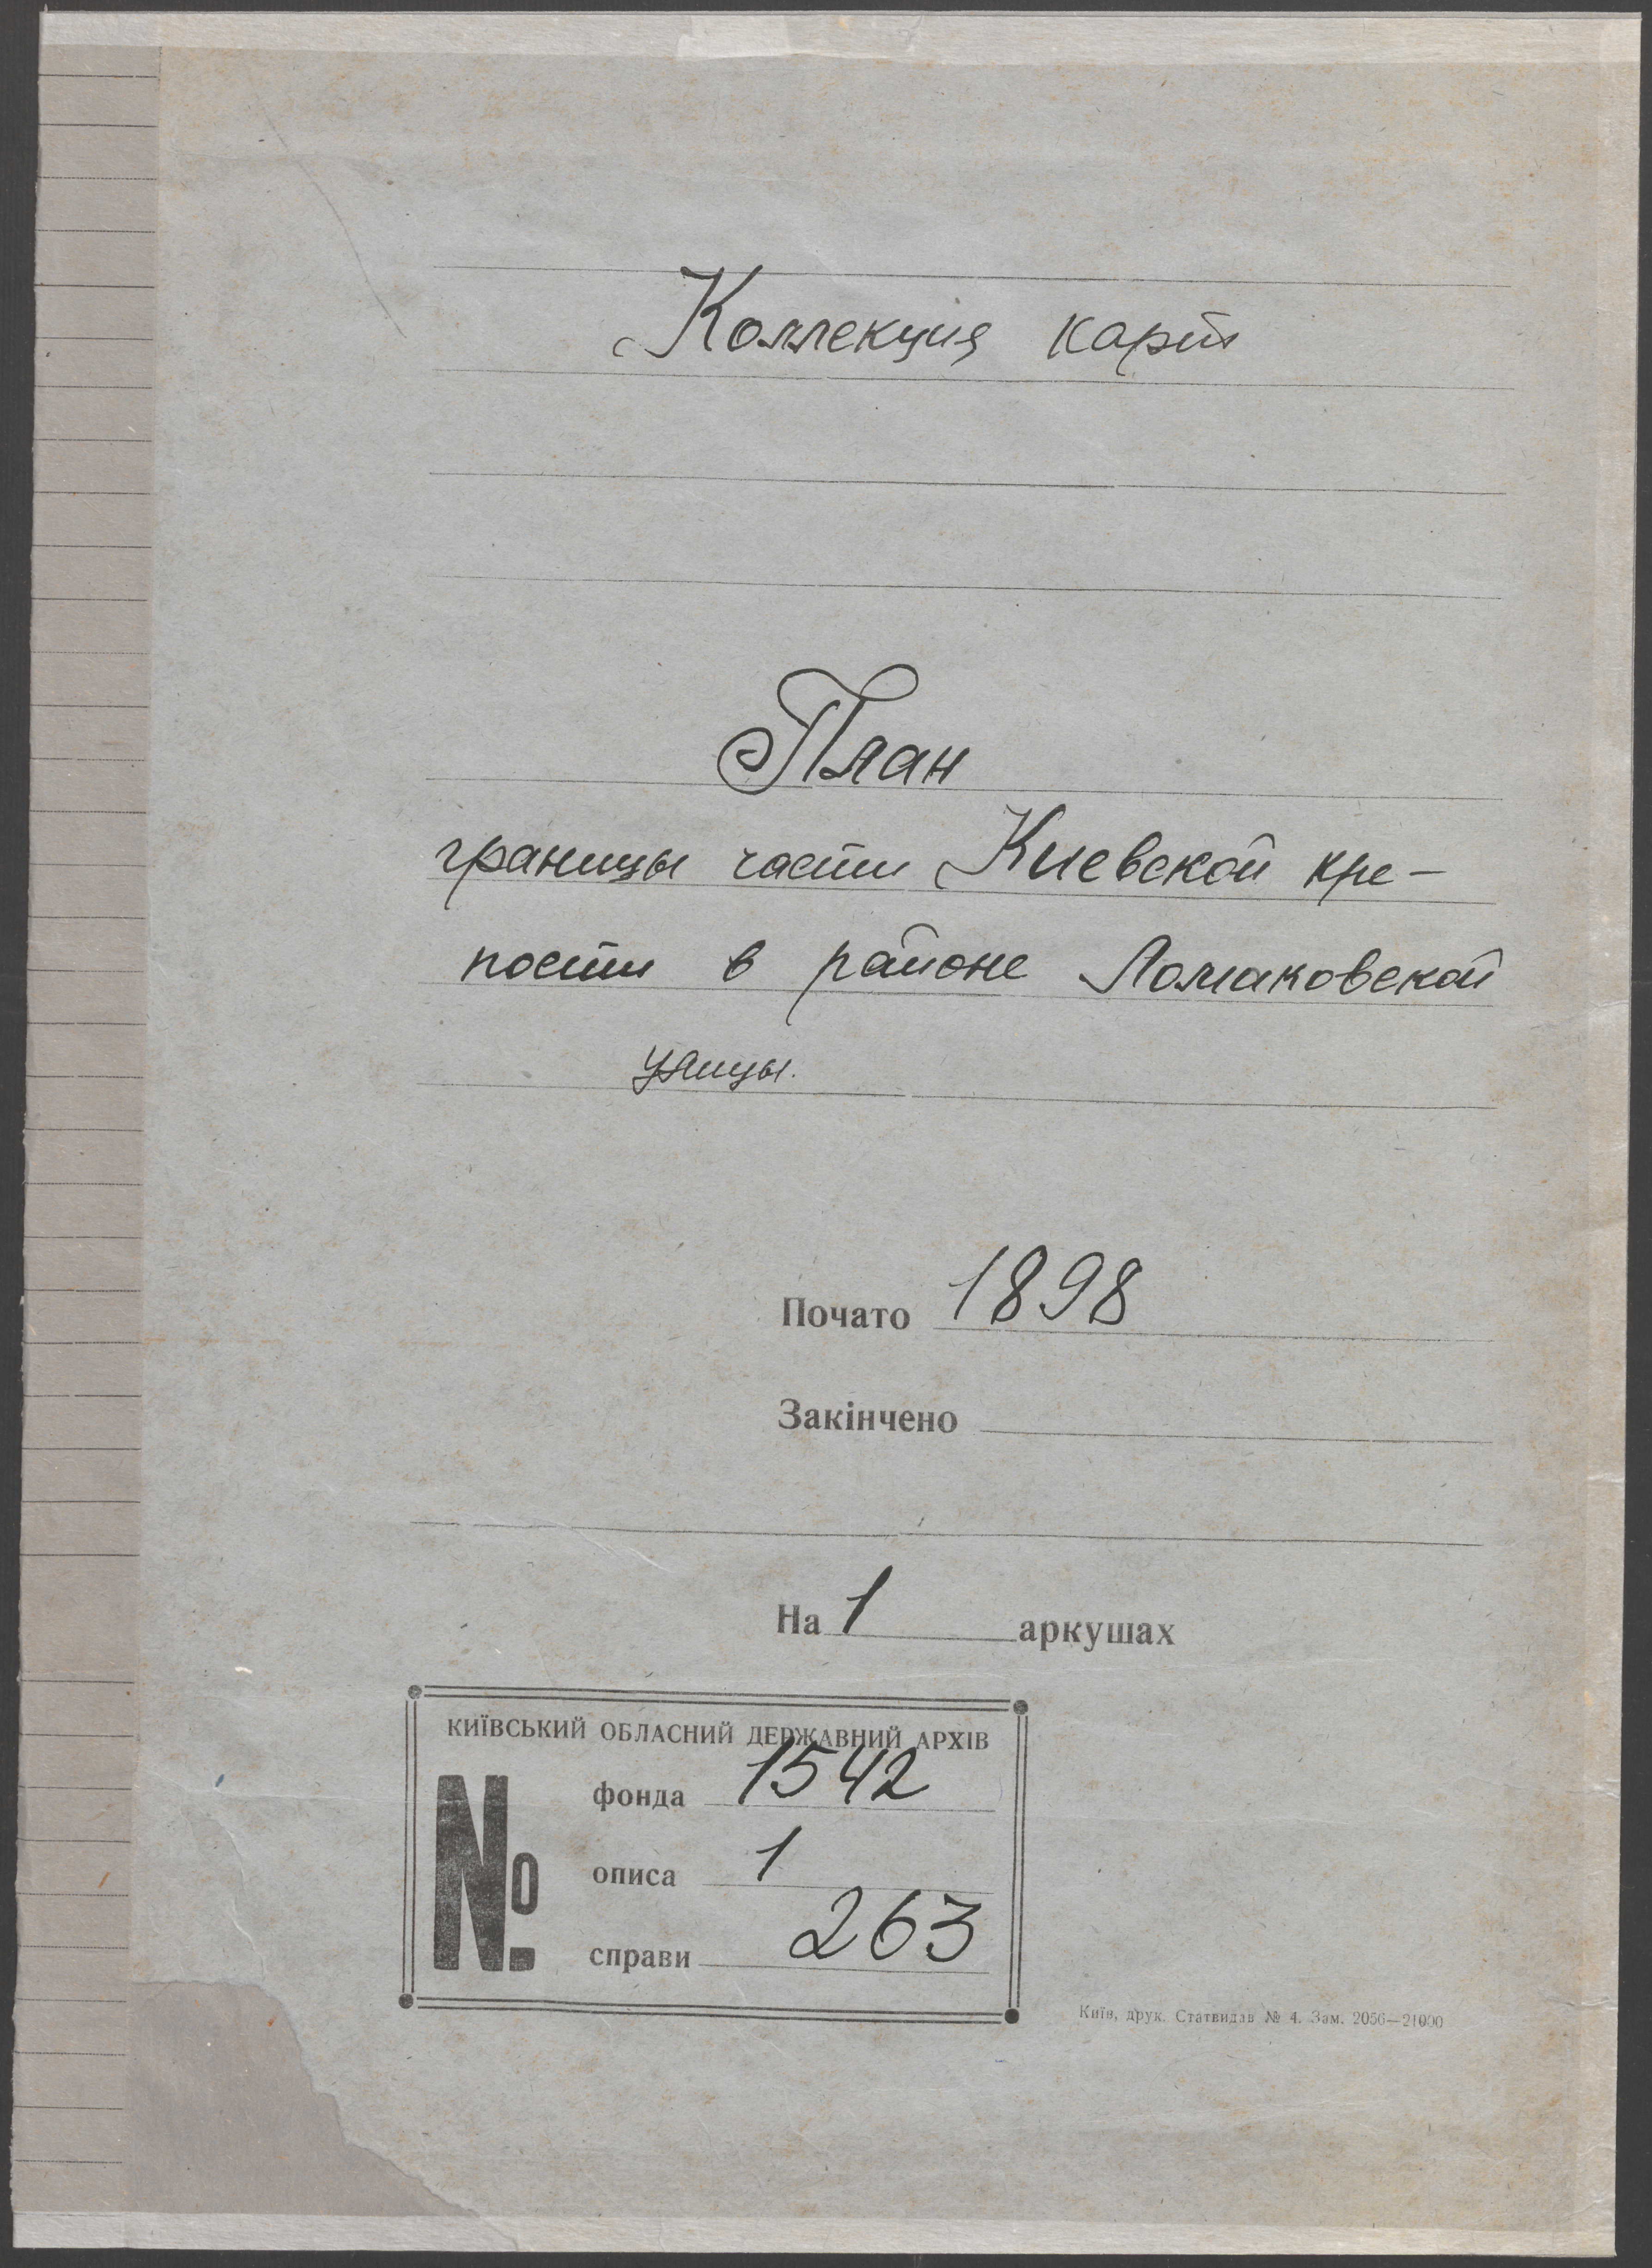 Коллекция карт
План
границы части Киевской кре-
пости в районе Ломаковской
улицы.
Почато 1898
Закінчено
На 1 аркушах
КИЇВСЬКИЙ ОБЛАСНИЙ ДЕРЖАВНИЙ АРХІВ
№
фонда 1542
описа 1
справи 263
Київ, друк. Статвидав № 4. Зам. 2056—21000